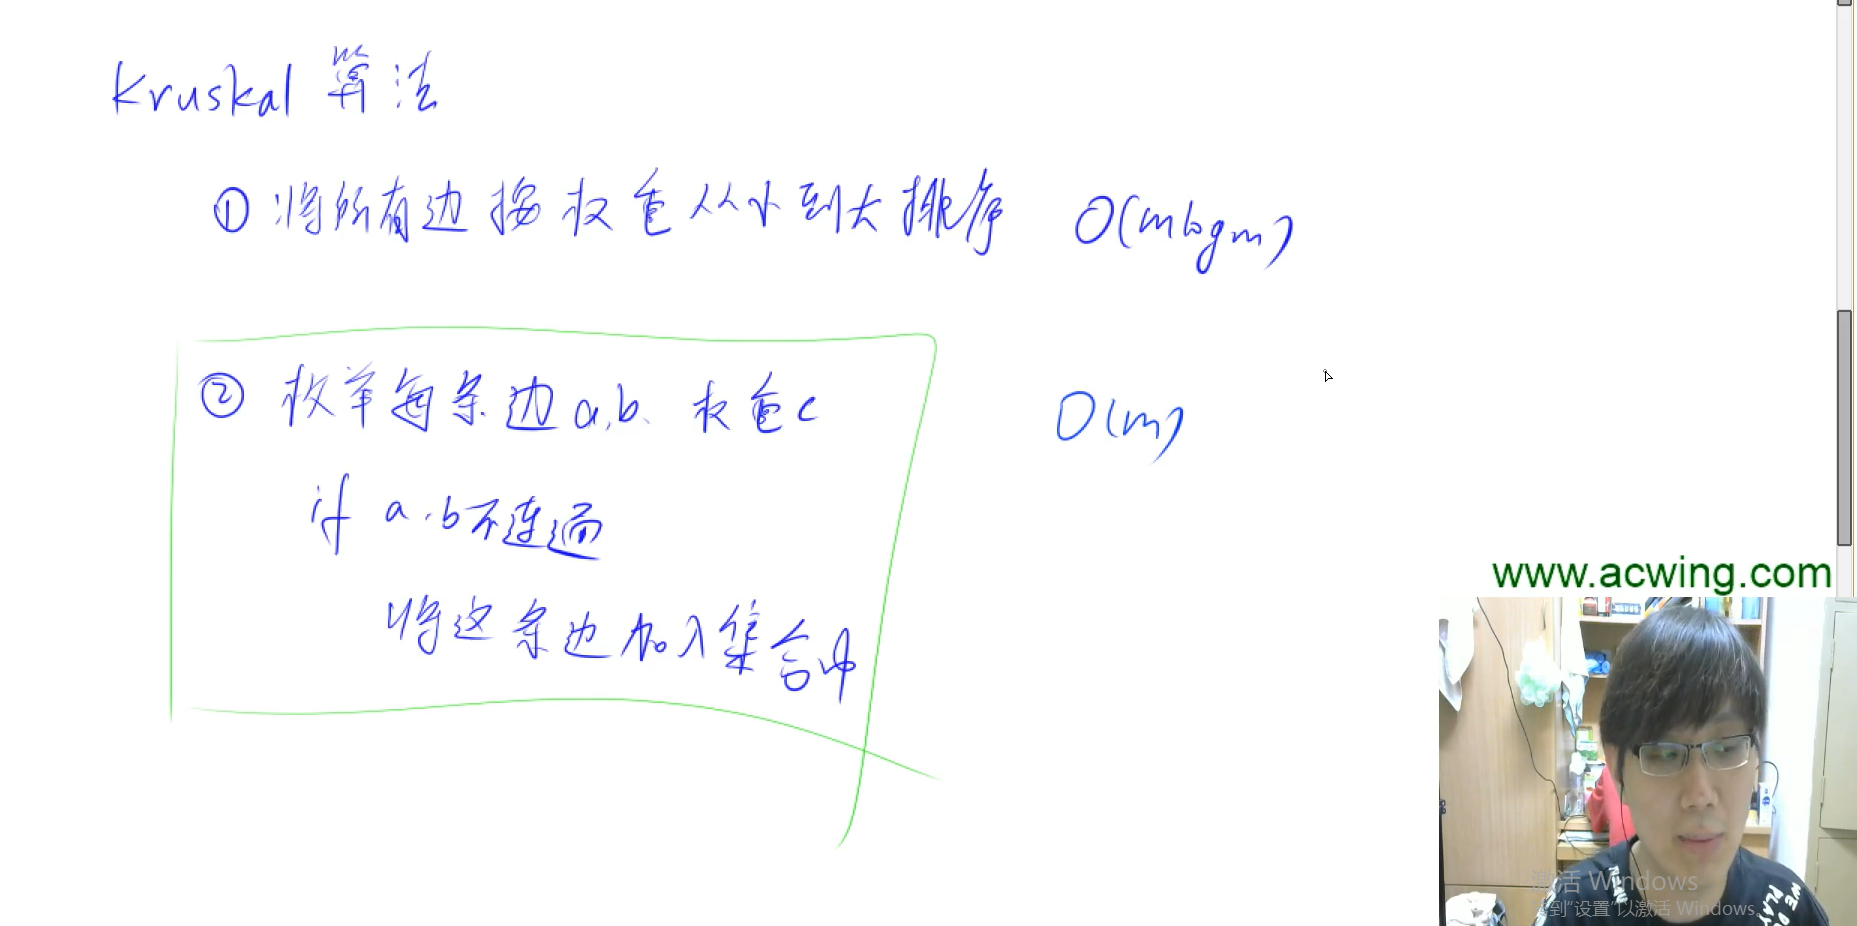 Kruskal 算法
① 将所有边按权重从小到大排序 O(mlogm)
② 枚举每条边a,b、权重c O(m)
if a,b不连通
将这条边加入集合中
www.acwing.com
激活 Windows
到“设置”以激活 Windows。